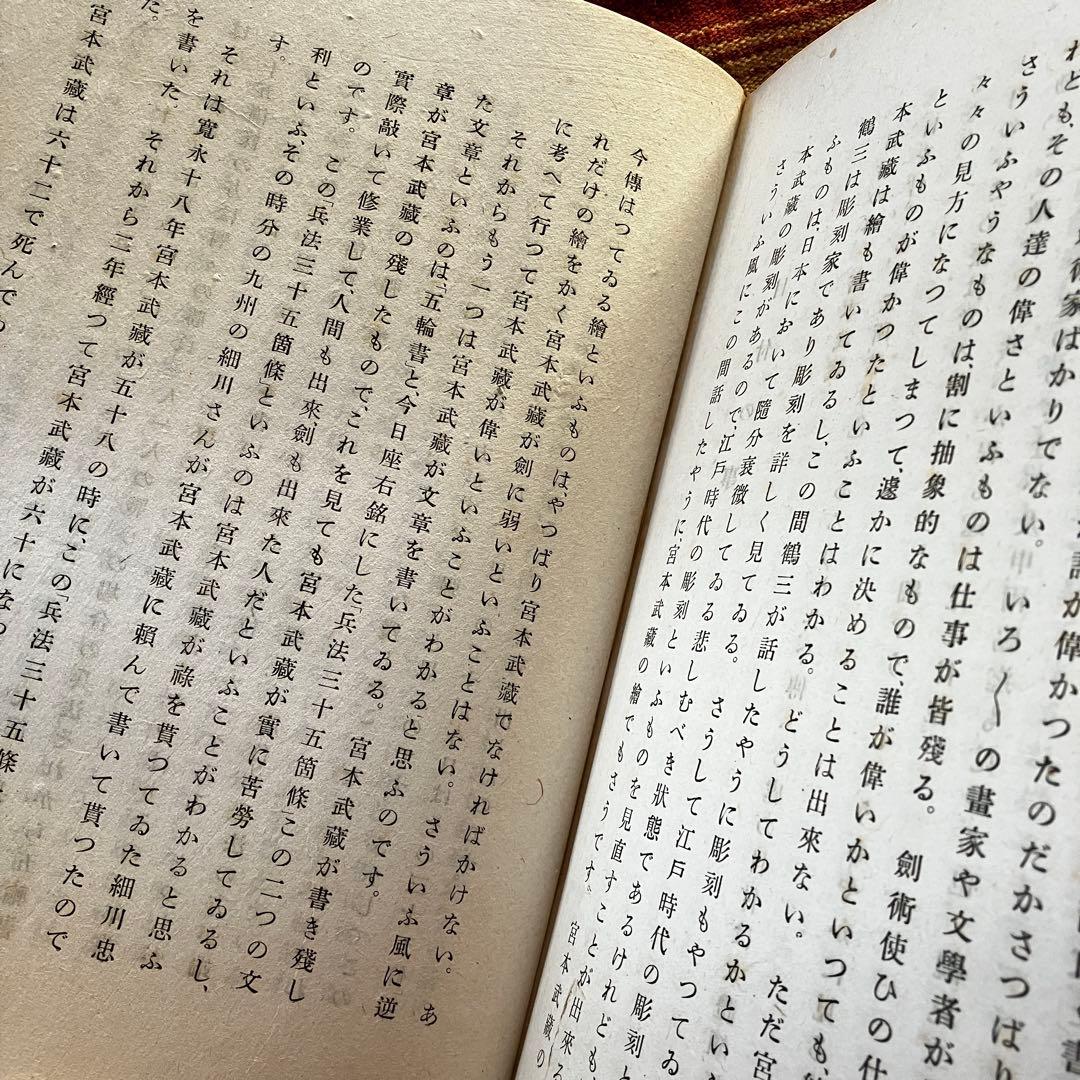 話が偉かつたのだかさつぱり
術家はかりでない。 いろ〱の畫家や文學者が
れども、その人達の偉さといふものは仕事が皆殘る。 劍術使ひの仕
さういふやうなものは、割に抽象的なもので、誰が偉いかといつても、
々々の見方になつてしまつて、遽かに決めることは出來ない。 ただ宮
といふものが偉かつたといふことはわかる。 どうしてわかるかとい
本武藏は繪も書いてゐるし、この間鶴三が話したやうに彫刻もやつてゐ
鶴三は彫刻家であり彫刻を詳しく見てゐる。 さうして江戸時代の彫刻と
ふものは、日本において隨分衰微してゐる悲しむべき狀態であるけれども、
本武藏の彫刻があるので、江戸時代の彫刻といふものを見直すことが出來る
さういふ風にこの間話したやうに、宮本武藏の繪でもさうです。 宮本武藏の
今傳はつてゐる繪といふものは、やつぱり宮本武藏でなければかけない。 あ
れだけの繪をかく宮本武藏が劍に弱いといふことはない。 さういふ風に逆
に考へて行つて宮本武藏が偉いといふことがわかると思ふのです。
それからもう一つは宮本武藏が文章を書いてゐる。 宮本武藏が書き殘し
た文章といふのは、「五輪書」と、今日座右銘にした「兵法三十五箇條」この二つの文
章が宮本武藏の殘したもので、これを見ても宮本武藏が實に苦勞してゐるし、
實際敲いて修業して、人間も出來、劍も出來た人だといふことがわかると思ふ
のです。 この「兵法三十五箇條」といふのは宮本武藏が祿を貰つてゐた細川忠
利といふ、その時分の九州の細川さんが宮本武藏に賴んで書いて貰つたので
す。
それは寬永十八年宮本武藏が五十八の時に、この「兵法三十五條
を書いた。それから三年經つて宮本武藏が六十になつ
た。
宮本武藏は六十二で死んで